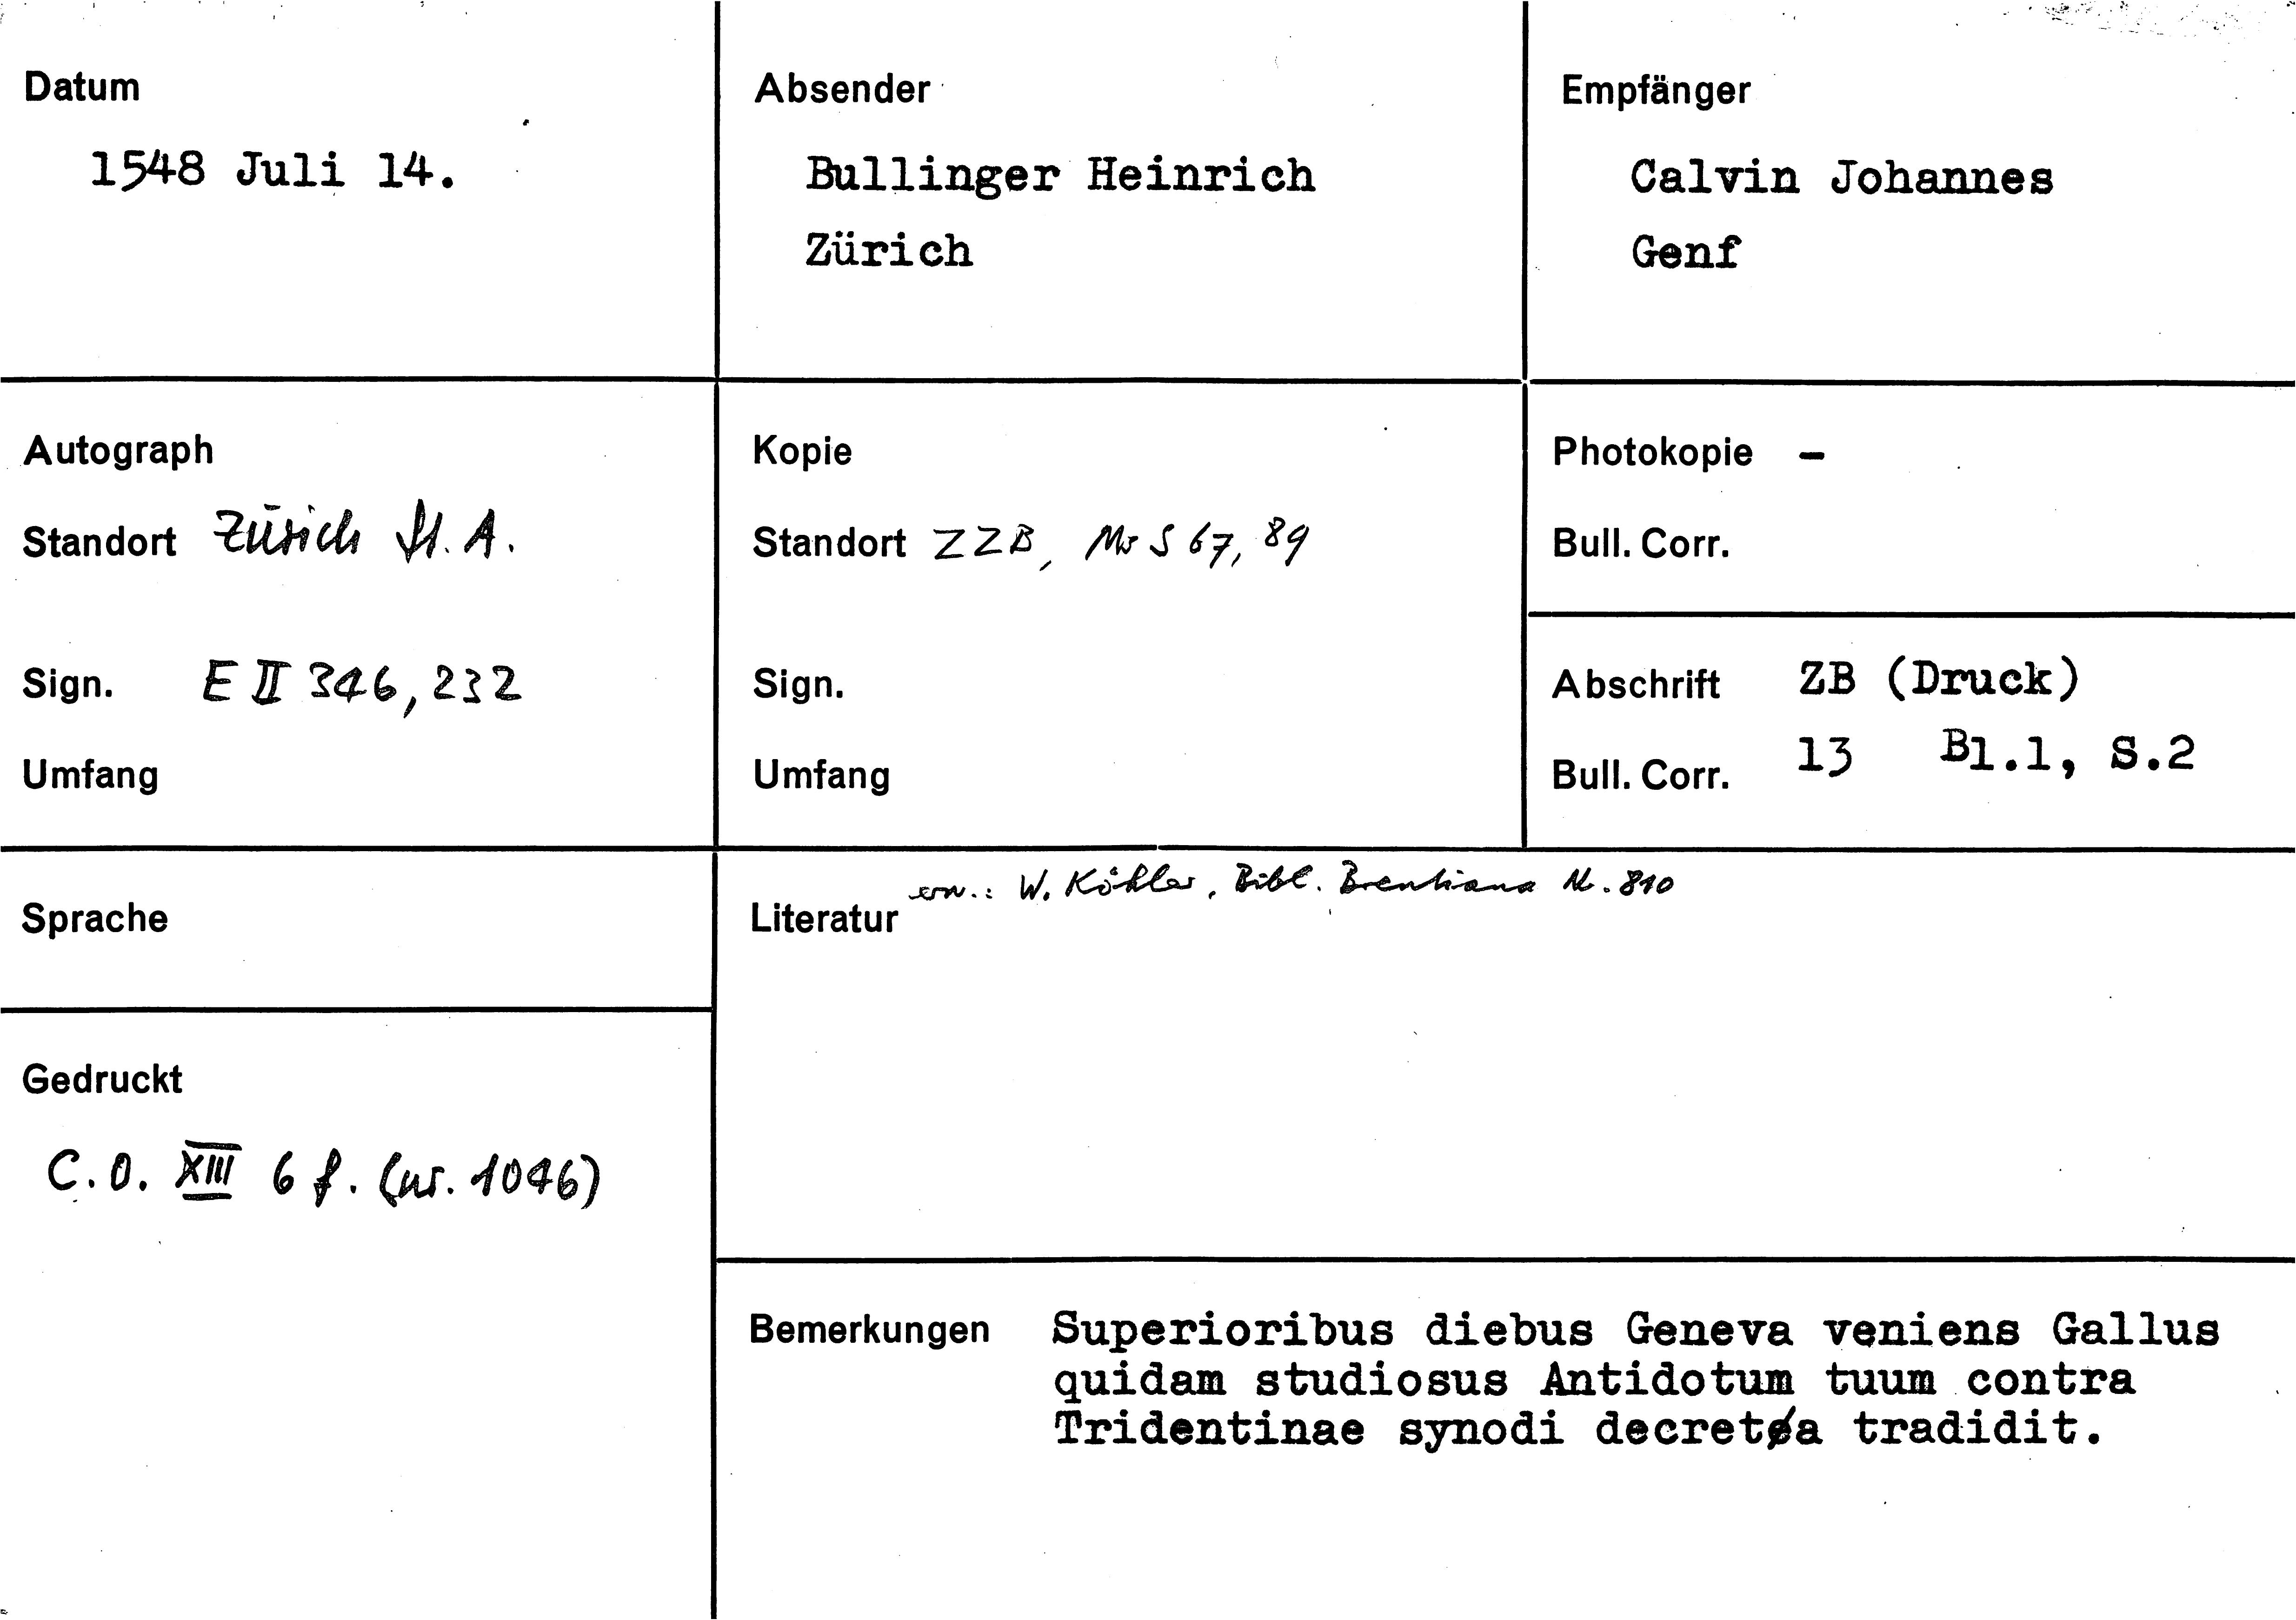 Datum
1548 Juli 14.
Absender
Bullinger Heinrich
Zürich
Empfänger
Calvin Johannes
Genf
Autograph
Standort Zürich St. A.
Sign. E II 346, 232
Umfang
Kopie
Standort ZZB, Ms S 67, 89
Sign.
Umfang
Photokopie -
Bull. Corr.
Abschrift ZB (Druck)
Bull. Corr. 13 Bl.1, S.2
Sprache
Gedruckt
C.O. XIII 6 f. (nr. 1046)
Literatur erw.: W. Köhler, Bibl. Brentiana Nr. 810
Bemerkungen Superioribus diebus Geneva veniens Gallus
quidam studiosus Antidotum tuum contra
Tridentinae synodi decreta tradidit.